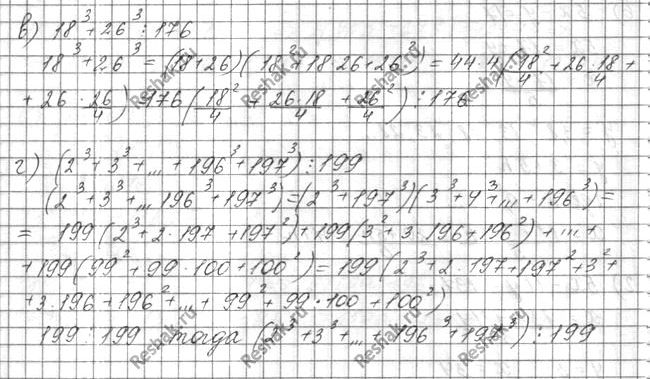 в) 18³+26³ ⋮ 176
18³+26³ = (18+26)(18²+18·26+26²) = 44·4(18²/4 + 26·18/4 +
+ 26·26/4) = 176(18²/4 + 26·18/4 + 26²/4) ⋮ 176
г) (2³+3³+...+196³+197³) ⋮ 199
(2³+3³+...196³+197³)=(2³+197³)(3³+4³+...+196³)=
= 199(2³+2·197+197²)+199(3²+3·196+196²)+...+
+199(99²+99·100+100²)=199(2³+2·197+197²+3²+
+3·196+196²+...+99²+99·100+100²)
199 ⋮ 199, тогда (2³+3³+...+196³+197³) ⋮ 199
Reshak.ru